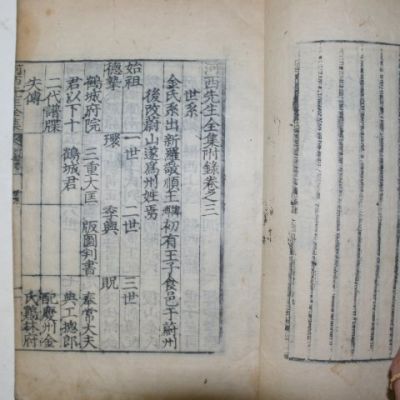 河西先生全集附錄卷之三
世系
金氏系出新羅敬順王 初有王子食邑于蔚州
後改蔚山遂爲州姓焉
始祖 一世 二世 三世
德摯 環 季興 貺
鶴城府院 三重大匡 版圖判書 奉常大夫
君以下十 鶴城君 典工摠郎
二代譜牒 配慶州金
失傳 氏鷄林府